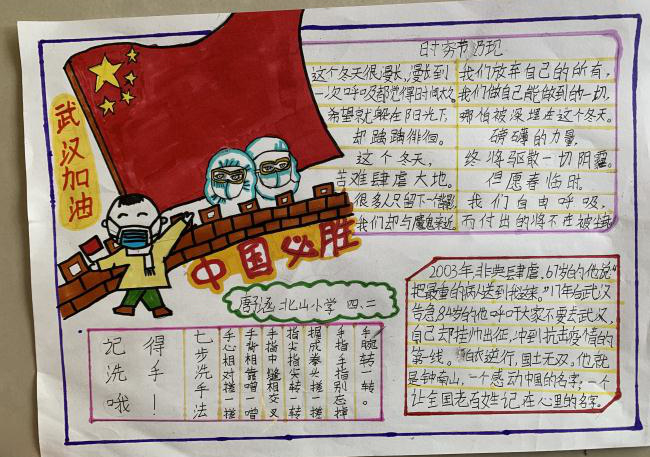 武汉加油
中国必胜
时穷节乃现
这个冬天很漫长,漫长到
一次呼吸都觉得时间太久。
希望就躲在阳光下,
却踽踽徘徊。
这个冬天,
苦难肆虐大地。
很多人只留下一个背影
我们却与魔鬼亲近
我们放弃自己的所有,
我们做自己能做到的一切,
哪怕被深埋在这个冬天。
磅礴的力量,
终将驱散一切阴霾。
但愿春临时,
我们自由呼吸,
而付出的将不在被
北山小学 四、二
2003年,非典肆虐,67岁的他说“
把最重的病人送到我这来。”17年后武汉
告急84岁的他呼吁大家不要去武汉,
自己却挂帅出征,冲到抗击疫情的
第一线。 白衣逆行,国土无双,他就
是钟南山,一个感动中国的名字,一个
让全国老百姓记在心里的名字。
记得
洗手
哦!
七步洗手法
手心相对搓一搓
手背相靠噌一噌
手指中缝相交叉
指尖指尖转一转
握成拳头搓一搓
手指手指别忘掉
手腕转一转。